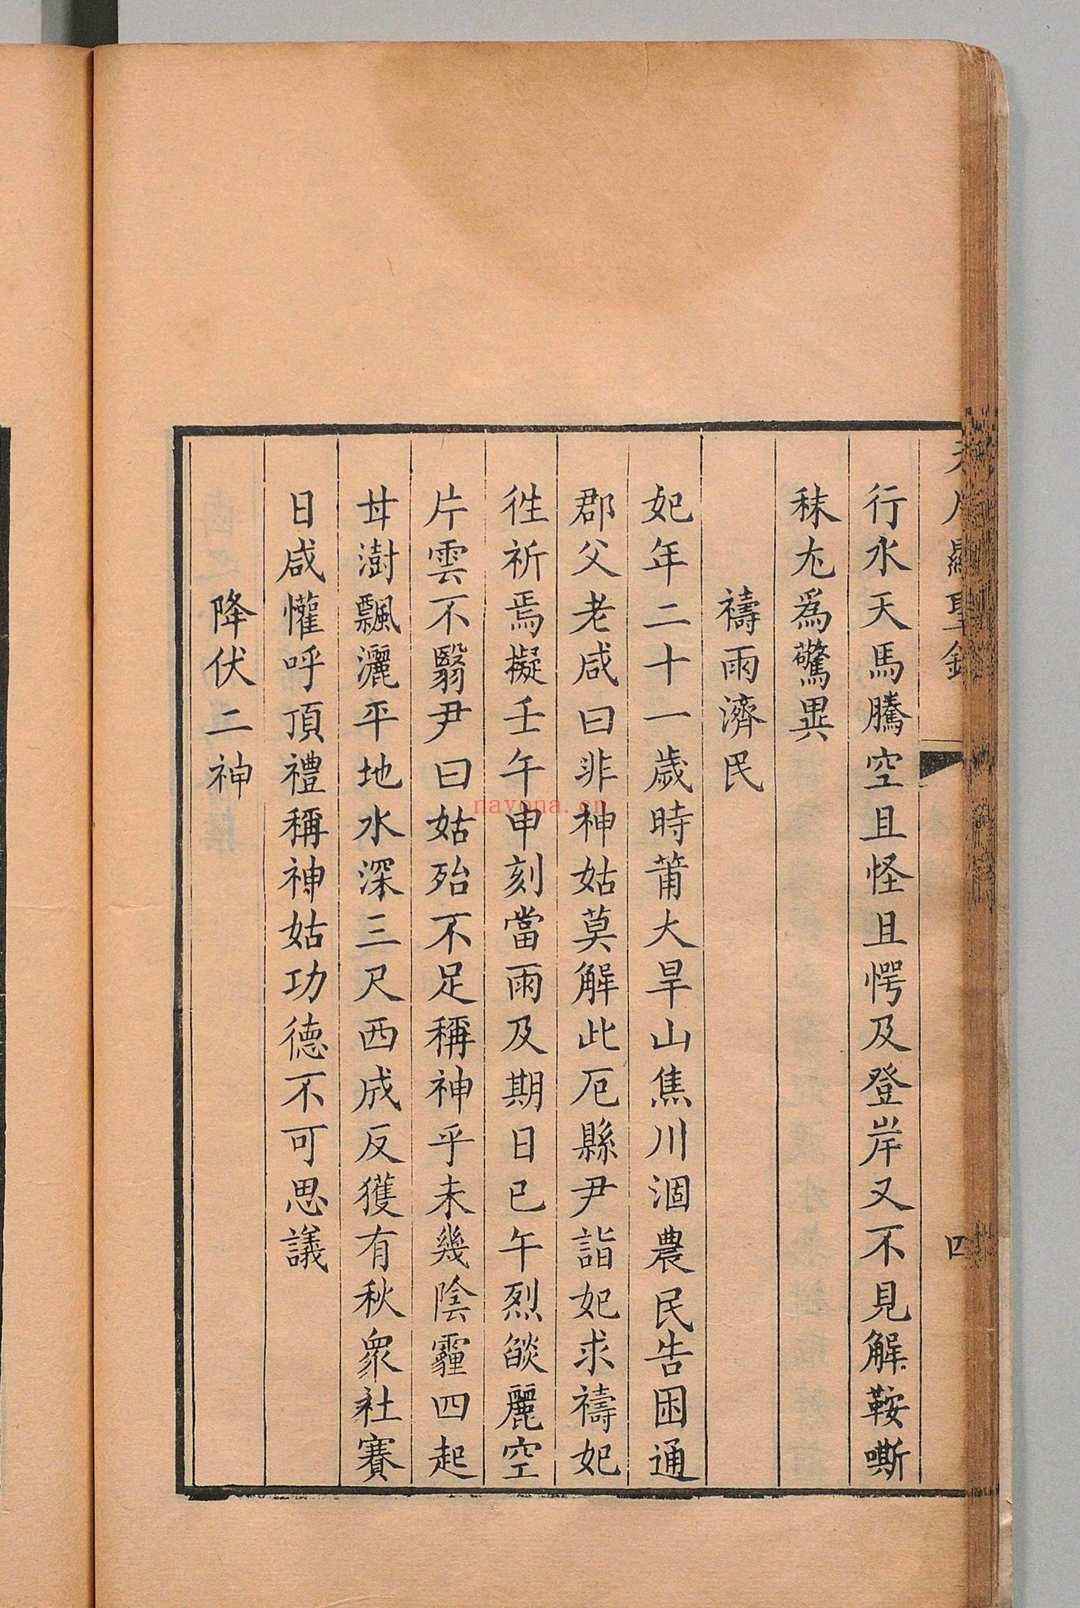 天后顯聖錄
四
行水天馬騰空且怪且愕及登岸又不見解鞍嘶
秣尢為驚異
禱雨濟民
妃年二十一歲時莆大旱山焦川涸農民告困通
郡父老咸曰非神姑莫解此厄縣尹詣妃求禱妃
徃祈焉擬壬午申刻當雨及期日已午烈燄麗空
片雲不翳尹曰姑殆不足稱神乎未幾陰霾四起
甘澍飄灑平地水深三尺西成反獲有秋衆社賽
日咸懽呼頂禮稱神姑功德不可思議
降伏二神
nayona.cn